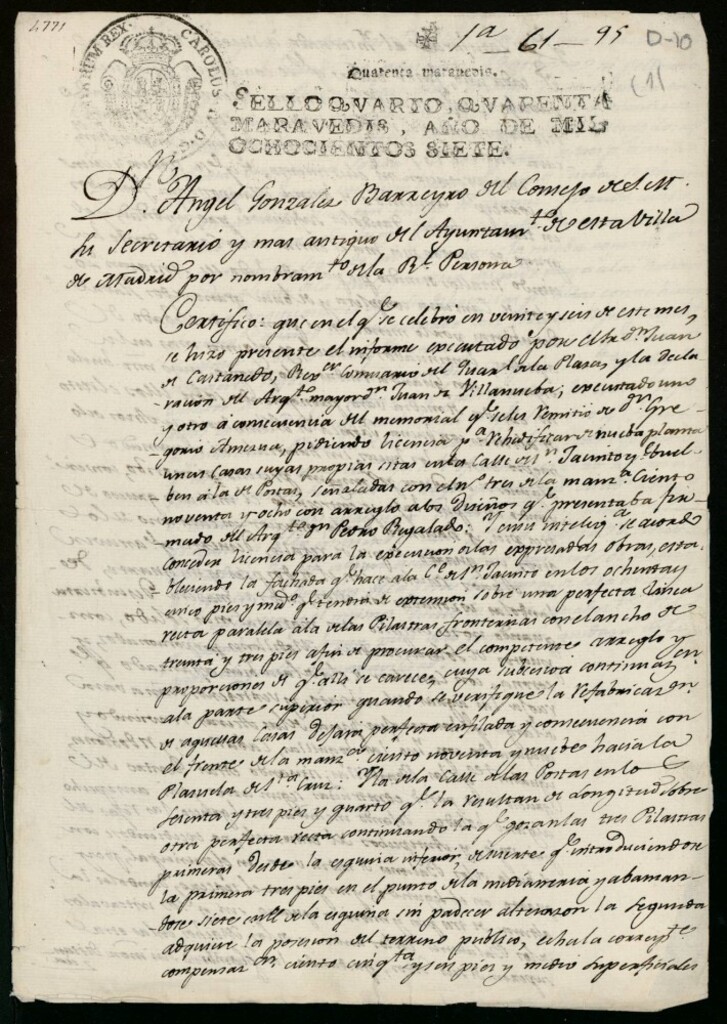 4771
1a 61-95
D-10
(1)
HISPANIARUM REX. CAROLUS IV D. G.
Quarenta maravedis.
SELLO QVARTO, QVARENTA
MARAVEDIS, AÑO DE MIL
OCHOCIENTOS SIETE.
Dn. Angel Gonzalez Barreyro del Consejo de S. M.
su Secretario y mas antiguo del Ayuntamto. de esta Villa
de Madrid por nombramto. de la Rl. Persona
Certifico: que en el qe. se celebró en veinte y seis de este mes
se hizo presente el informe executado por el Sr. dn. Juan
de Castanedo, Rexor. Comisario del Quartl. de la Plaza, y la decla-
racion del Arqto. mayor dn. Juan de Villanueba; executado uno
y otro á consecuencia del memorial qe. se les remitio de dn. Gre-
gorio pidiendo licencia pa. rehedificar de nueba planta
unas Casas suyas propias sitas en la Calle de Sn. Jacinto y buel-
ben á la de Postas, señaladas con el no. tres de la manza. ciento
noventa y ocho con arreglo a los diseños qe. presentaba fir-
mado del Arqto. dn. Pedro Regalado: Y en su inteliga. se acordó
conceder licencia para la execucion de las expresadas obras, esta-
bleciendo la fachada qe. hace a la Ce. de Sn. Jacinto en los ochenta y
cinco pies y mo. qe. tendrá de extension sobre una perfecta linea
recta paralela á la de las Pilastras fronterizas con el ancho de
treinta y tres pies a fin de procurar el competente arreglo y
proporciones de qe. alli se carece, cuya subcesiva continuazn.
a la parte superior quando se verifique la refabricazn.
de aquellas Casas dejara perfecta enfilada y consecuencia con
el frente de la manza. ciento noventa y nuebe hacia la
Plazuela de Sta. Cruz: Y la de la Calle de las Postas en los
sesenta y tres pies y quarto qe. la resultan de longitud sobre
otra perfecta recta continuando la qe. gozan las tres Pilastras
primeras desde la esquina inferior, de suerte qe. introduciendose
la primera tres pies en el punto de la medianeria y abanzan-
dose siete en el de la esquina sin padecer alteracion la segunda
adquiere la posesion del terreno publico, echa la corresp.te
compensazn. ciento cinqta. y seis pies y medio superficiales